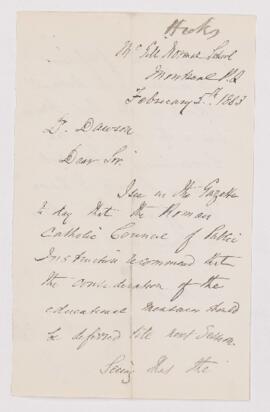 Hicks
McGill Normal School
Montreal P.Q
February 5th 1883
Dr. Dawson
Dear Sir
I see in the Gazette
to day that the Roman
Catholic Council of Public
Instruction recommend that
the consideration of the
educational measures should
be deferred till next Session.
Seeing that the